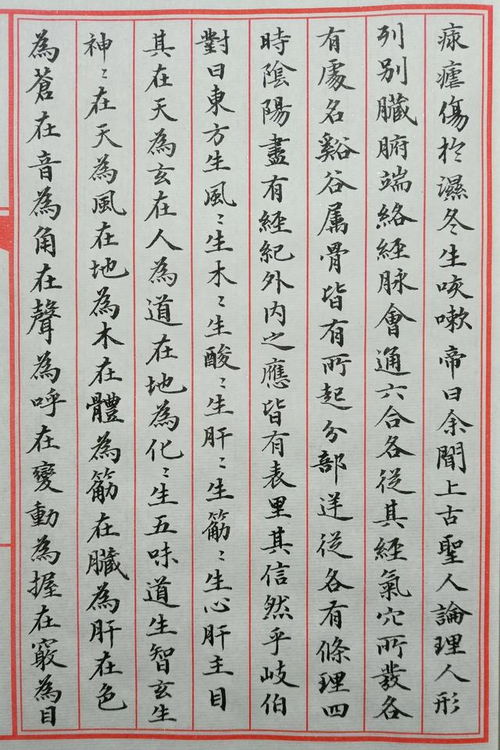 痎瘧傷於濕冬生咳嗽帝曰余聞上古聖人論理人形
列别臟腑端絡經脉會通六合各從其經氣穴所發各
有處名谿谷属骨皆有所起分部逆從各有條理四
時陰陽盡有經紀外内之應皆有表里其信然乎岐伯
對曰東方生風〻生木〻生酸〻生肝〻生筋〻生心肝主目
其在天為玄在人為道在地為化〻生五味道生智玄生
神〻在天為風在地為木在體為筋在臟為肝在色
為蒼在音為角在聲為呼在變動為握在竅為目